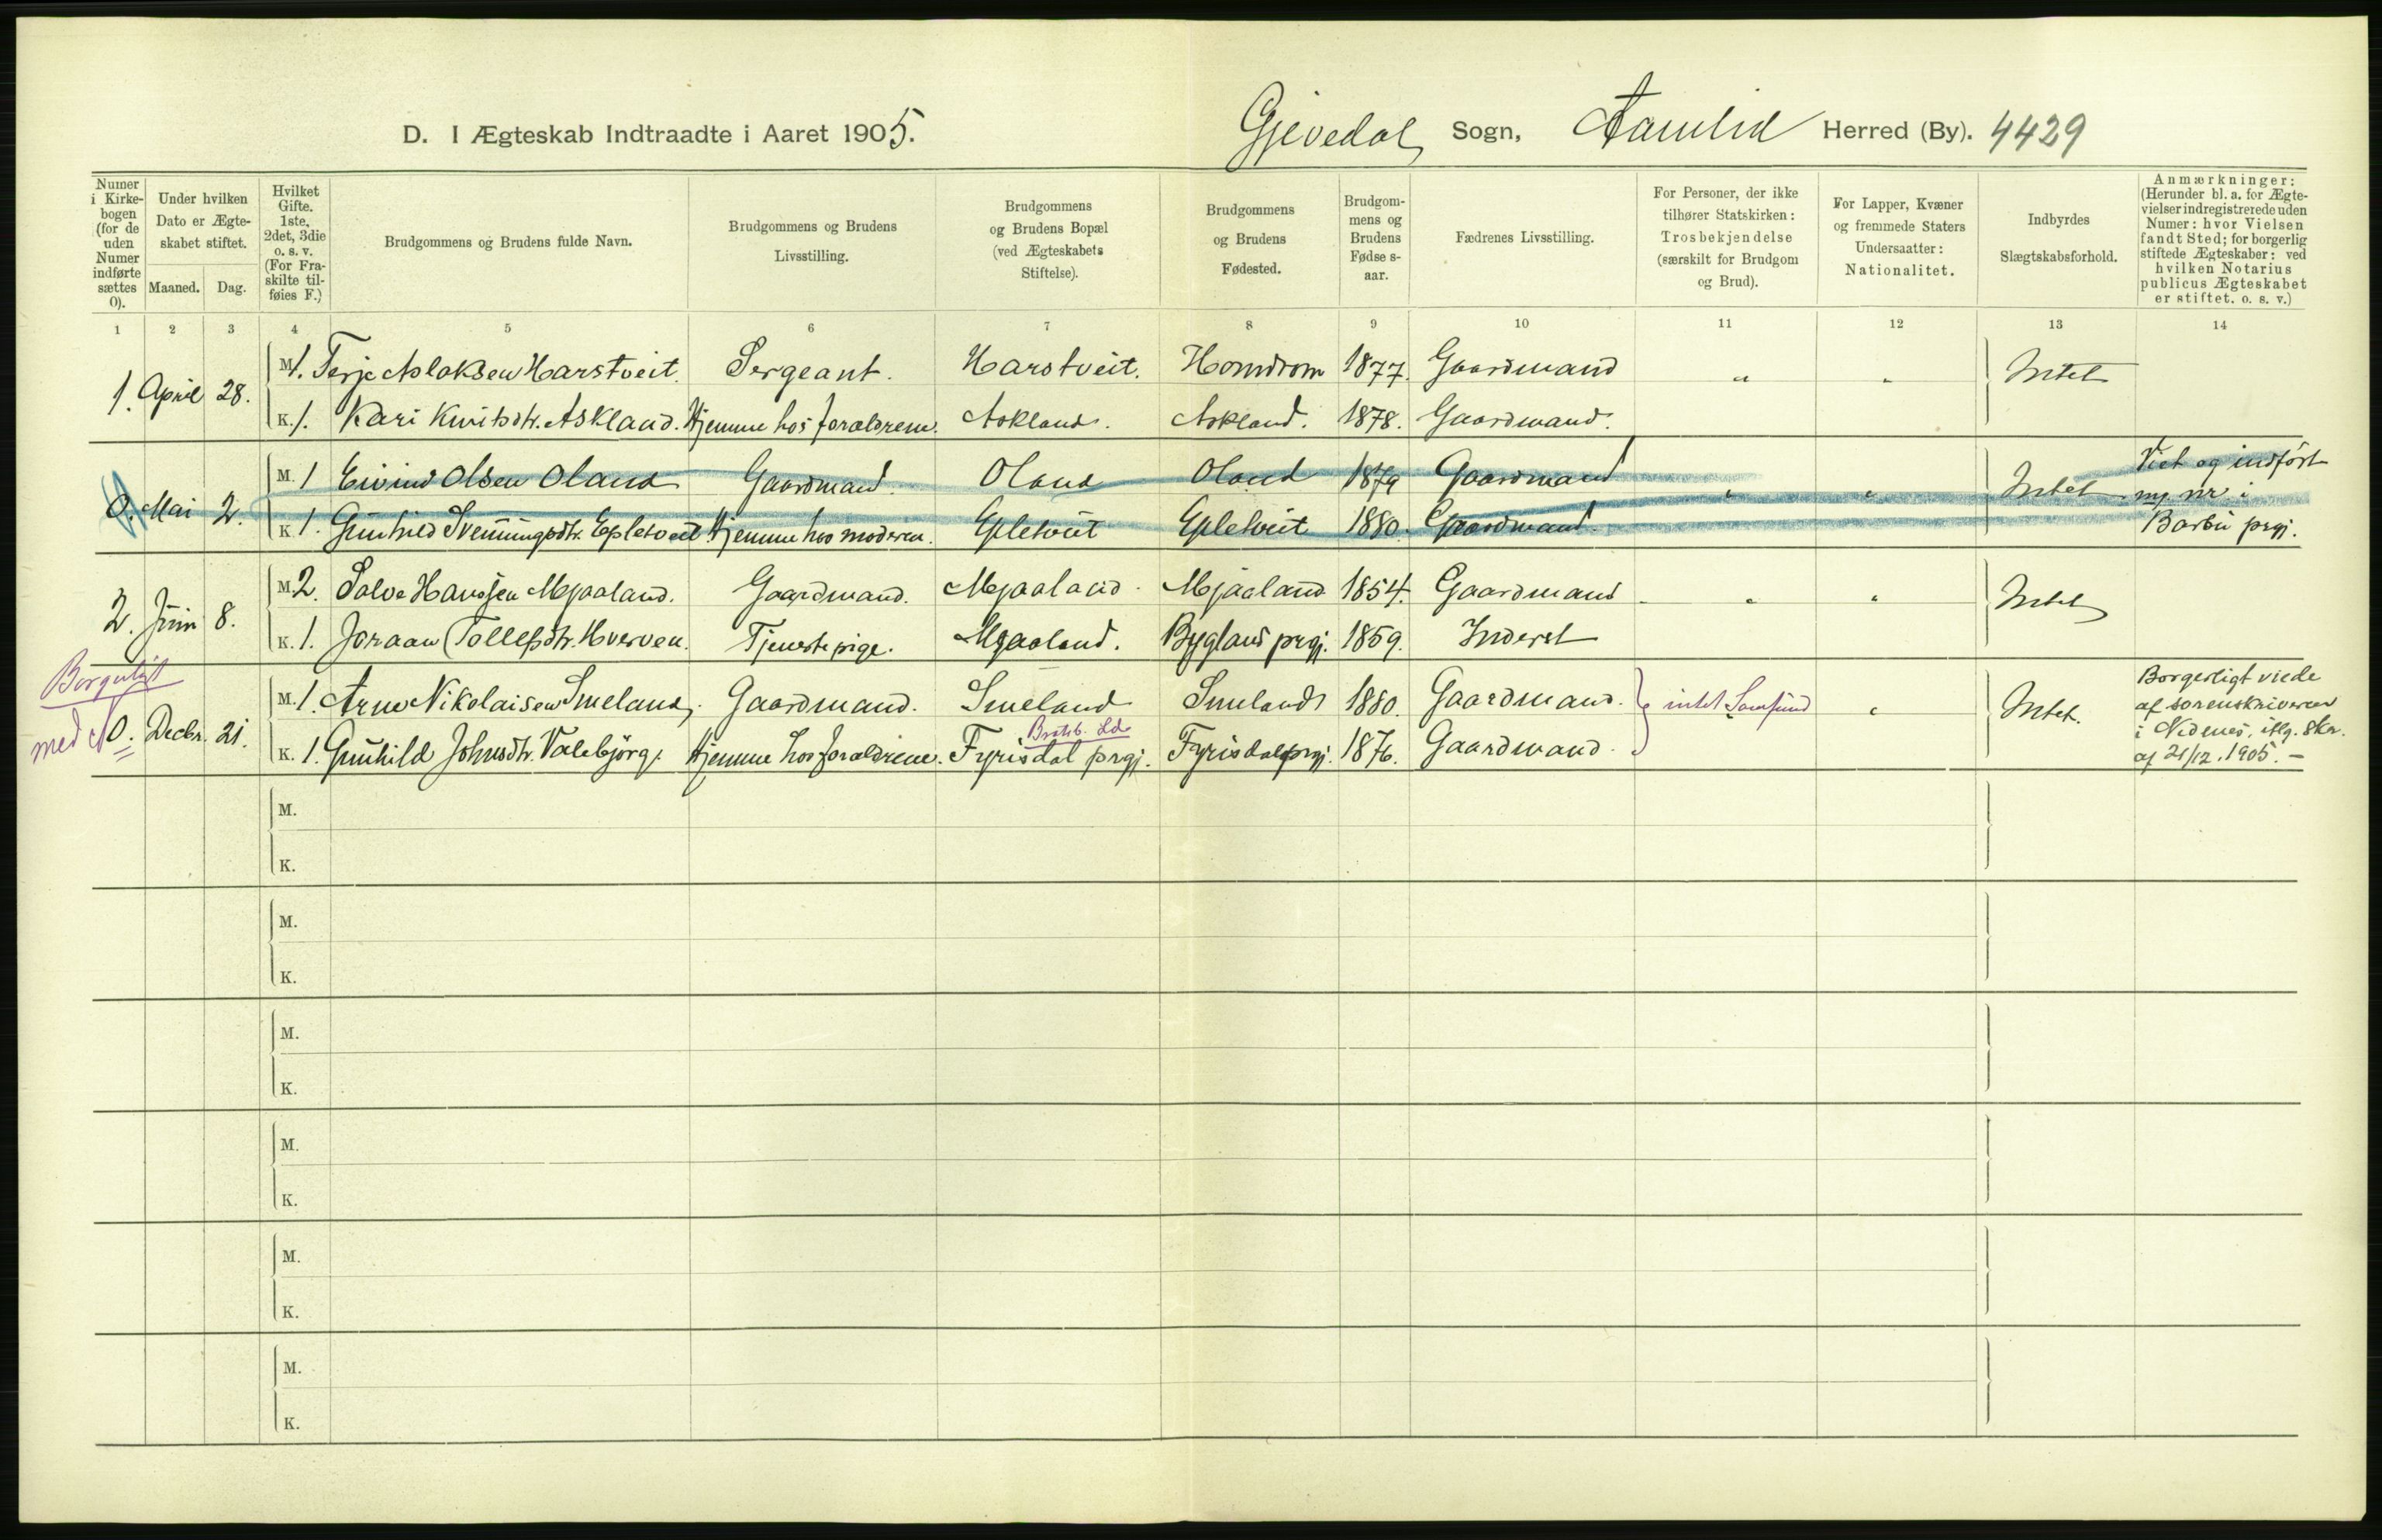 D. I Ægteskab Indtraadte i Aaret 1905.
Gjevedal Sogn, Aamlid Herred (By). 4429
Numer i Kirkebogen (for de uden Numer indførte sættes 0).
Under hvilken Dato er Ægteskabet stiftet.
Maaned. Dag.
Hvilket Gifte. 1ste, 2det, 3die o. s. v. (For Fraskilte tilføies F.)
Brudgommens og Brudens fulde Navn.
Brudgommens og Brudens Livsstilling.
Brudgommens og Brudens Bopæl (ved Ægteskabets Stiftelse).
Brudgommens og Brudens Fødested.
Brudgommens og Brudens Fødselsaar.
Fædrenes Livsstilling.
For Personer, der ikke tilhører Statskirken: Trosbekjendelse (særskilt for Brudgom og Brud).
For Lapper, Kvæner og fremmede Staters Undersaatter: Nationalitet.
Indbyrdes Slægtskabsforhold.
Anmærkninger: (Herunder bl. a. for Ægtevielser indregistrerede uden Numer: hvor Vielsen fandt Sted; for borgerlig stiftede Ægteskaber: ved hvilken Notarius publicus Ægteskabet er stiftet. o. s. v.)
1 2 3 4 5 6 7 8 9 10 11 12 13 14
1. April 28. M. 1. Terje Aslaksen Harstveit. Sergeant. Harstveit. Homdrom 1877. Gaardmand " " Intet
K. 1. Kari Knutsdtr. Askland. Hjemme hos forældrene. Askland. Askland. 1878. Gaardmand.
0. Mai 2. M. 1 Eivind Olsen Oland Gaardmand. Oland Oland 1879 Gaardmand " " Intet Viet og indført
K. 1. Gunhild Svenningsdtr. Epletveit Hjemme hos moderen. Epletveit Epletveit 1880. Gaardmand. m. nr. i
Barbu prgj.
2. Juni 8. M. 2. Salve Hansen Mjaaland. Gaardmand. Mjaaland. Mjaaland 1854. Gaardmand " " Intet
K. 1. Joraan Tollefsdtr. Hverven. Tjenestepige. Mjaaland. Bygland prgj. 1859. Inderst
Borgerligt
med
0. Decbr. 21. M. 1. Arne Nikolaisen Smeland. Gaardmand. Smeland Smeland 1880. Gaardmand. intet Samfund " Intet.
K. 1. Gunhild Johnsdtr. Valebjørg. Hjemme hos forældrene. Fyrisdal prgj. Fyrisdal prgj. 1876. Gaardmand.
Bratsb.
Borgerligt viede
af sorenskriveren
i Nedenes, iflg. skr.
af 21/12. 1905. –
M.
K.
M.
K.
M.
K.
M.
K.
M.
K.
M.
K.